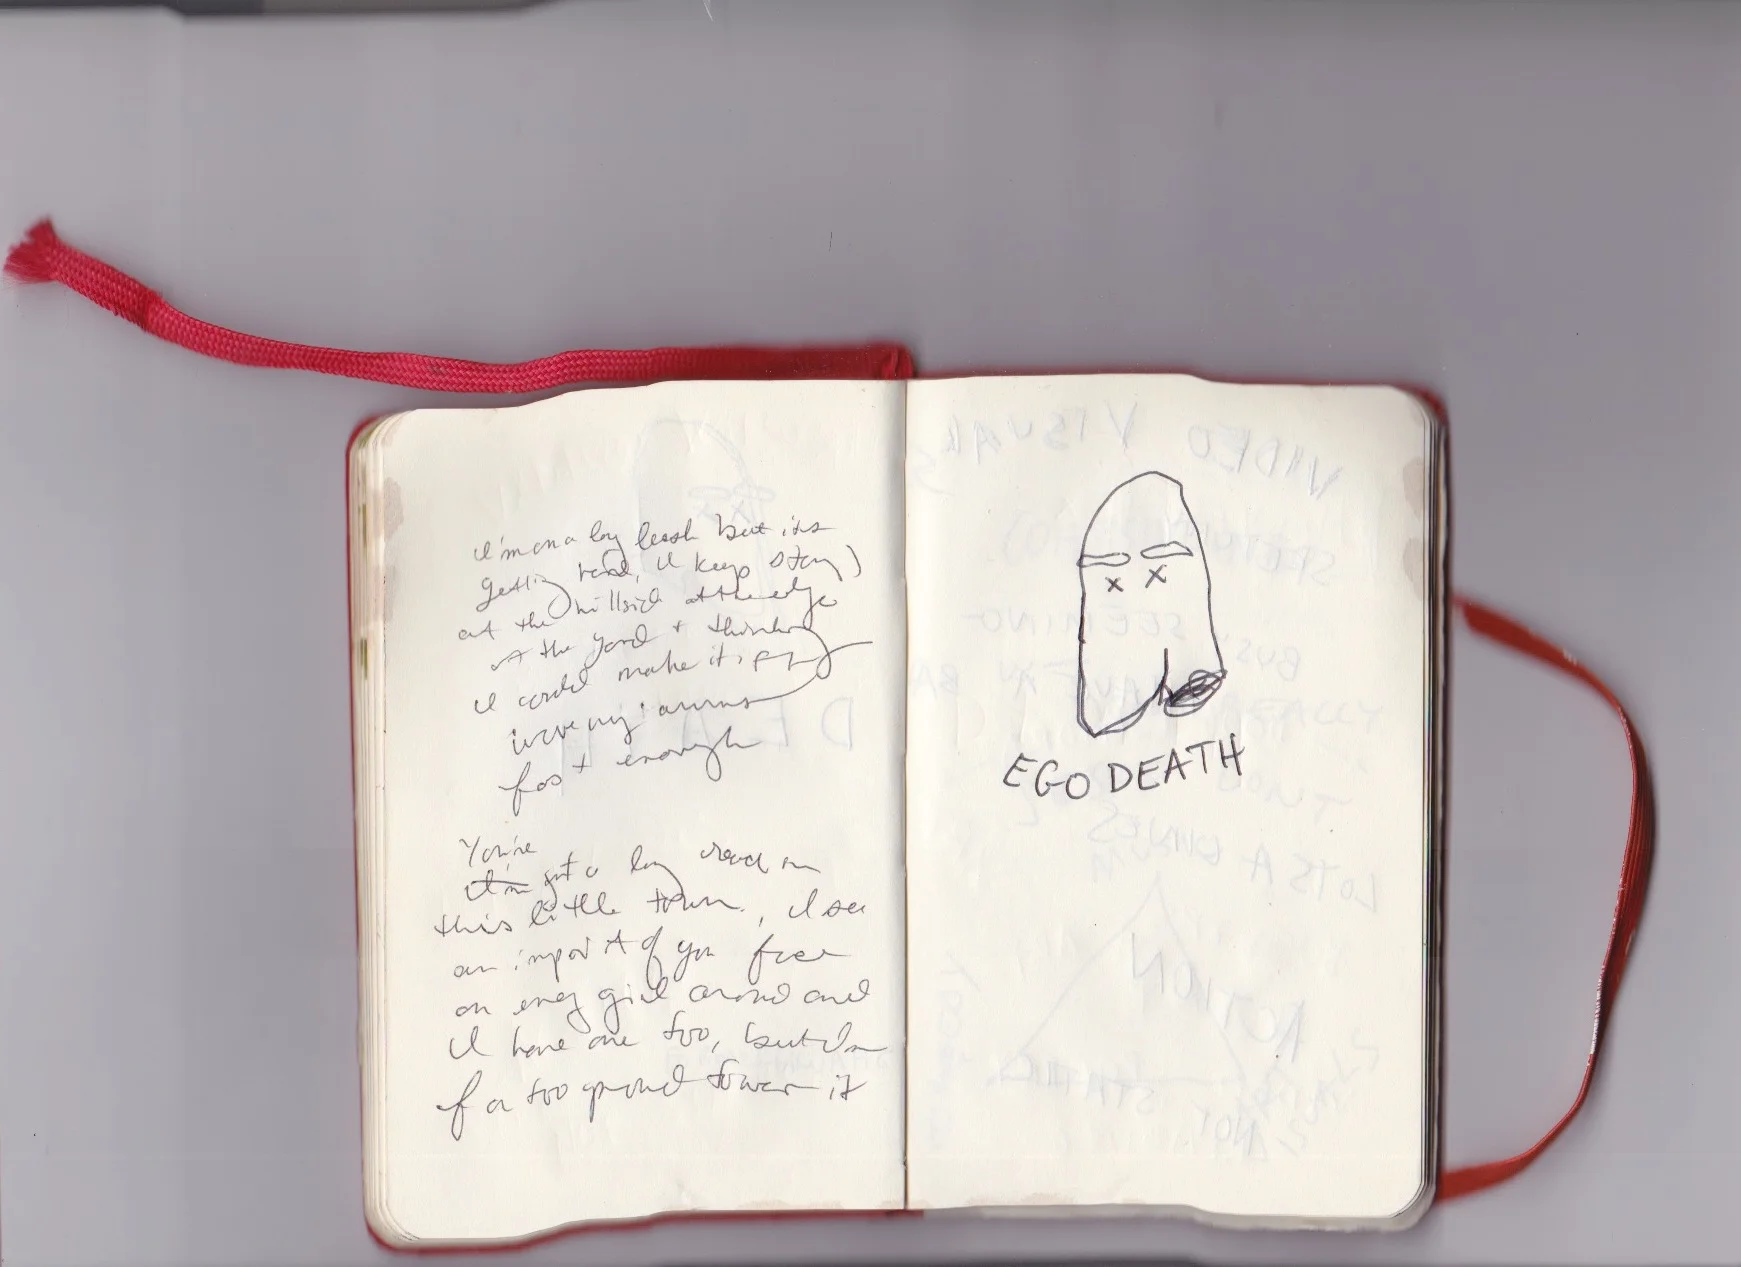 I'm on a long leash but its
getting hard, I keep staring
at the hillside at the edge
of the yard + thinking
I could make it if I
my arms
fast enough
You're
got a long on
this little town, I see
an import of you face
on every girl around and
I have one too, but I'm
far too proud to wear it
EGO DEATH